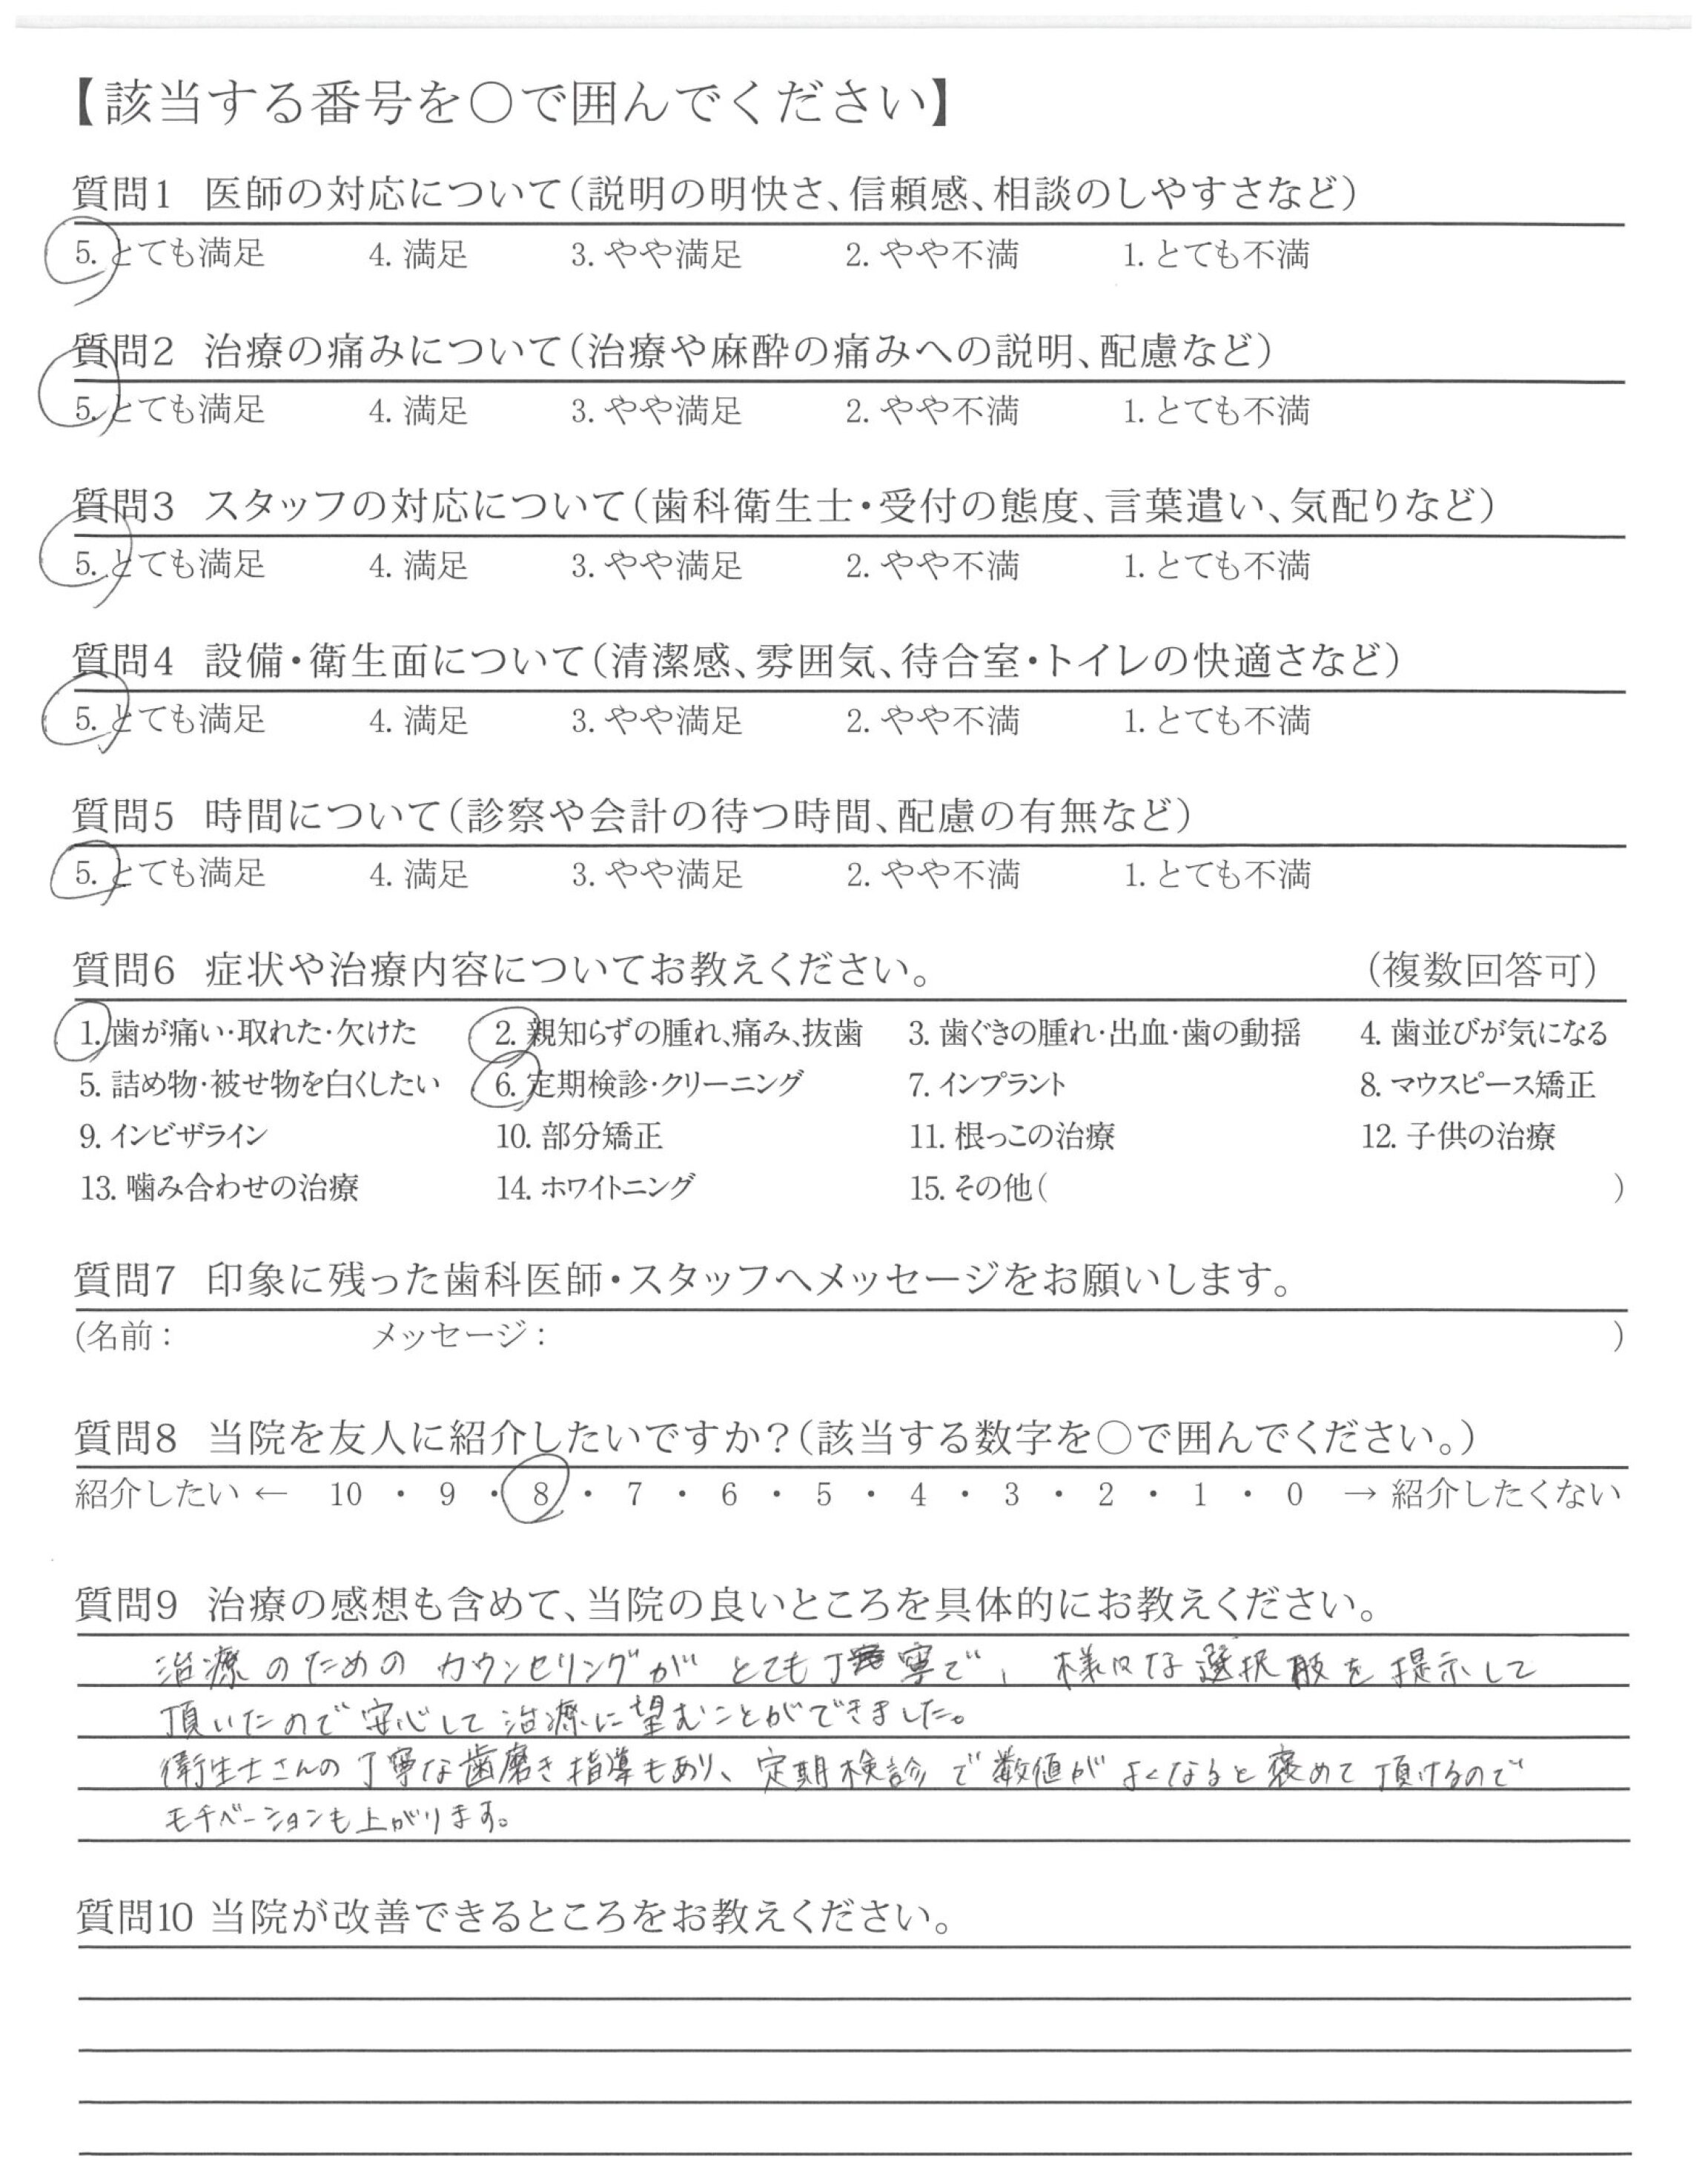 【該当する番号を○で囲んでください】
質問1 医師の対応について(説明の明快さ、信頼感、相談のしやすさなど)
5. とても満足 4. 満足 3. やや満足 2. やや不満 1. とても不満
質問2 治療の痛みについて(治療や麻酔の痛みへの説明、配慮など)
5. とても満足 4. 満足 3. やや満足 2. やや不満 1. とても不満
質問3 スタッフの対応について(歯科衛生士・受付の態度、言葉遣い、気配りなど)
5. とても満足 4. 満足 3. やや満足 2. やや不満 1. とても不満
質問4 設備・衛生面について(清潔感、雰囲気、待合室・トイレの快適さなど)
5. とても満足 4. 満足 3. やや満足 2. やや不満 1. とても不満
質問5 時間について(診察や会計の待つ時間、配慮の有無など)
5. とても満足 4. 満足 3. やや満足 2. やや不満 1. とても不満
質問6 症状や治療内容についてお教えください。 (複数回答可)
1. 歯が痛い・取れた・欠けた 2. 親知らずの腫れ、痛み、抜歯 3. 歯ぐきの腫れ・出血・歯の動揺 4. 歯並びが気になる
5. 詰め物・被せ物を白くしたい 6. 定期検診・クリーニング 7. インプラント 8. マウスピース矯正
9. インビザライン 10. 部分矯正 11. 根っこの治療 12. 子供の治療
13. 噛み合わせの治療 14. ホワイトニング 15. その他( )
質問7 印象に残った歯科医師・スタッフへメッセージをお願いします。
(名前: メッセージ: )
質問8 当院を友人に紹介したいですか?(該当する数字を○で囲んでください。)
紹介したい ← 10 ・ 9 ・ 8 ・ 7 ・ 6 ・ 5 ・ 4 ・ 3 ・ 2 ・ 1 ・ 0 → 紹介したくない
質問9 治療の感想も含めて、当院の良いところを具体的にお教えください。
治療のためのカウンセリングがとても丁寧で、様々な選択肢を提示して
頂いたので安心して治療に望むことができました。
衛生士さんの丁寧な歯磨き指導もあり、定期検診で数値がよくなると褒めて頂けるので
モチベーションも上がります。
質問10 当院が改善できるところをお教えください。